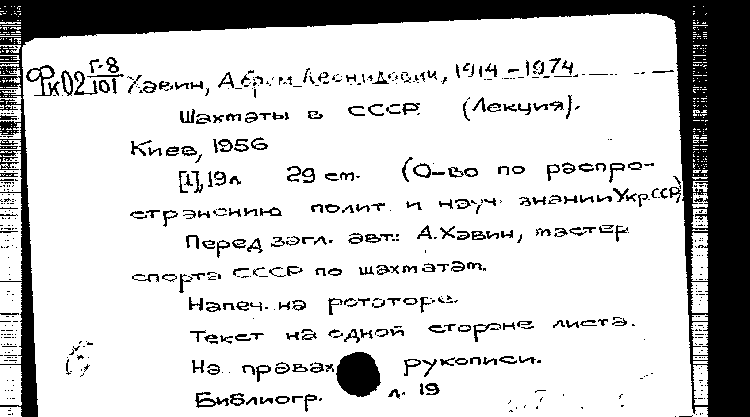 ФкО2 Г-8/101 Хавин, Абрам Леонидович, 1914-1974
Шахматы в СССР. (Лекция).
Киев, 1956
[1], 19 л 29 см. (О-во по распро-
странению полит. и науч. знаний Укр.ССР)
Перед загл. авт.: А.Хавин, мастер
спорта СССР по шахматам.
Напеч. на ротаторе.
Текст на одной стороне листа.
На правах рукописи.
Библиогр. л. 19